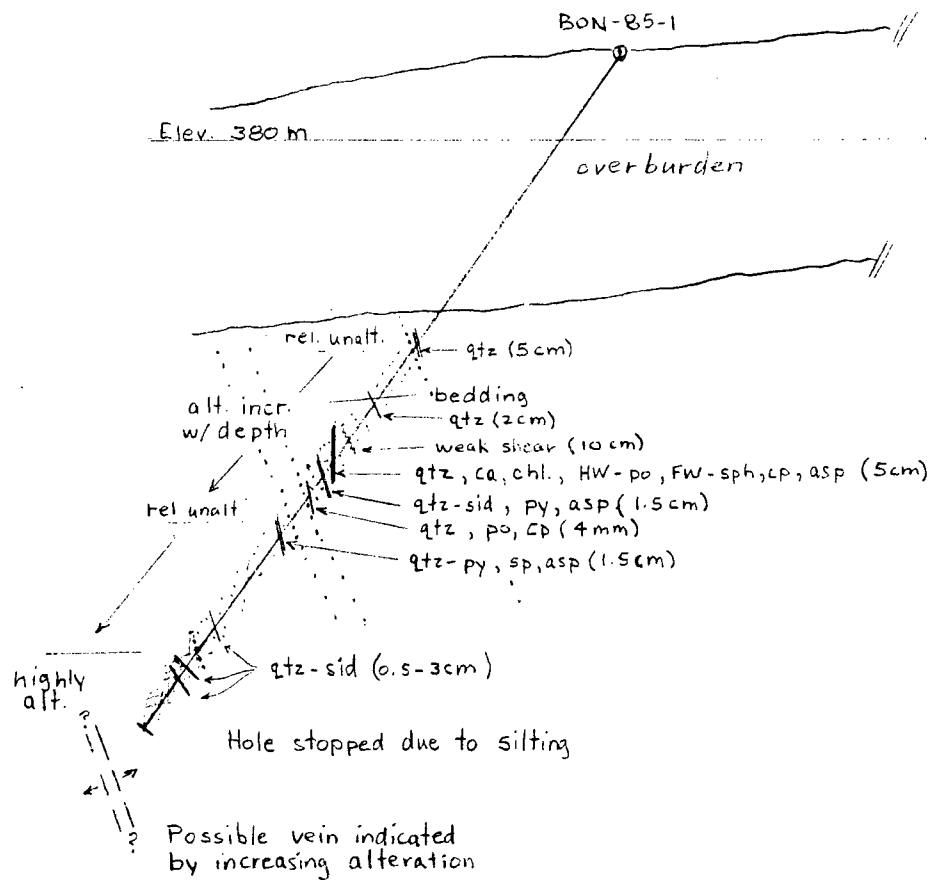 BON-85-1
Elev. 380 m
overburden
rel. unalt.
qtz (5cm)
alt. incr.
w/ depth
bedding
qtz (2cm)
weak shear (10cm)
qtz, ca, chl., HW-po, FW-sph, cp, asp (5cm)
rel unalt
qtz-sid, py, asp (1.5cm)
qtz, po, cp (4mm)
qtz-py, sp, asp (1.5cm)
highly
alt.
qtz-sid (0.5-3cm)
?
Hole stopped due to silting
?
Possible vein indicated
by increasing alteration